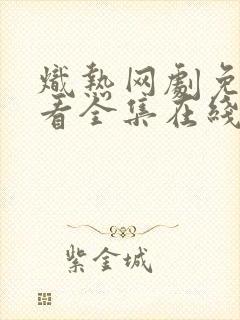 熾熱网劇免
看全集在綫
紫金城